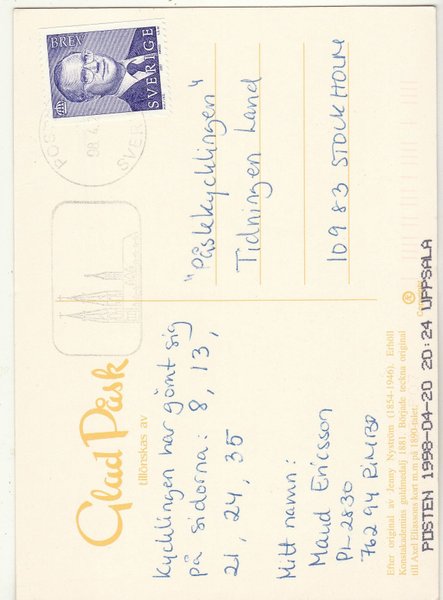 Glad Påsk
tillönskas av
Kycklingen har gömt sig
på sidorna: 8, 13,
21, 24, 35
Mitt namn:
Maud Ericsson
PL 2830
762 94 RIMBO
Efter original av Jenny Nyström (1854-1946). Erhöll
Konstakademins guldmedalj 1881. Började teckna original
till Axel Eliassons kort m.m på 1890-talet.
BREV
SVERIGE
"Påskkycklingen"
Tidningen Land
109 83 STOCKHOLM
POSTEN 1998-04-20 20:24 UPPSALA